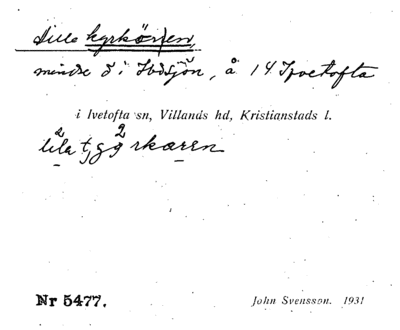 Lilla kyrkör(e)n,
mindre ö i Ivösjön, å 14 Ivetofta
i Ivetofta sn, Villands hd, Kristianstads l.
Nr 5477.
John Svensson. 1931